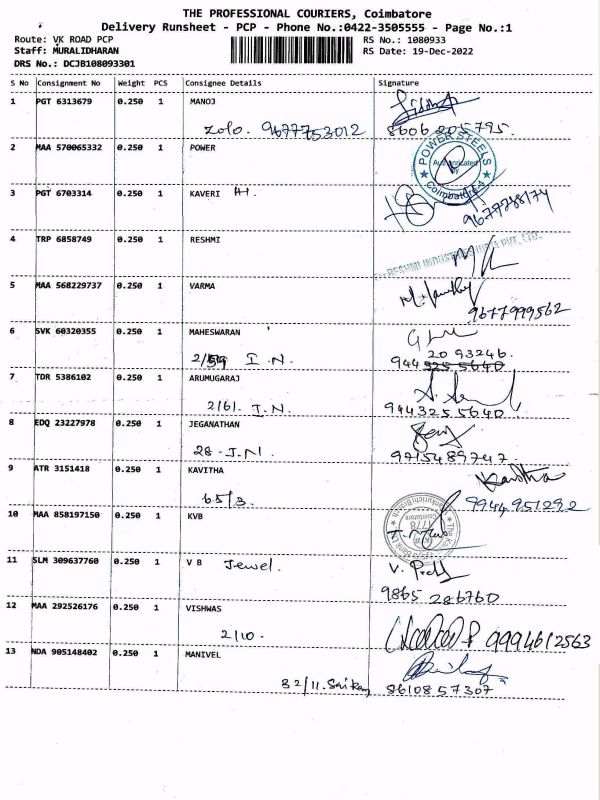 THE PROFESSIONAL COURIERS, Coimbatore
Delivery Runsheet - PCP - Phone No.:0422-3505555 - Page No.:1
Route: VK ROAD PCP
RS No.: 1080933
Staff: MURALIDHARAN
RS Date: 19-Dec-2022
DRS No.: DCJB108093301
S No Consignment No Weight PCS Consignee Details Signature
1 PGT 6313679 0.250 1 MANOJ
Zolo. 9677753012 8606 205795.
2 MAA 570065332 0.250 1 POWER
POWER STEELS
Authenticated by
Coimbatore-4
3 PGT 6703314 0.250 1 KAVERI
9677288174
4 TRP 6858749 0.250 1 RESHMI
RESHMI INDUSTRIES INDIA PVT. LTD.
5 MAA 568229737 0.250 1 VARMA
9677999562
6 SVK 60320355 0.250 1 MAHESWARAN
20 93246.
2/59 I.N. 944 325 5640
7 TDR 5386102 0.250 1 ARUMUGARAJ
2/61. I.N. 944325 5640
8 EDQ 23227978 0.250 1 JEGANATHAN
28. I.N. 9715489747
9 ATR 3151418 0.250 1 KAVITHA
Kavitha
65/3 9944951292
10 MAA 858197150 0.250 1 KVB
11 SLM 309637760 0.250 1 V B Jewel.
9865 286760
12 MAA 292526176 0.250 1 VISHWAS
2/10. 9994612563
13 NDA 905148402 0.250 1 MANIVEL
32/11. 8610857307